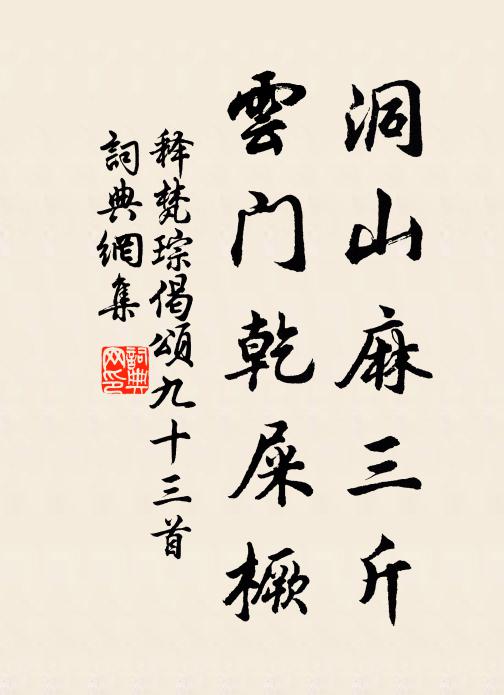 洞山麻三斤
雲门乾屎橛
释梵琮偈頌九十三首
詞典網集
詞典网印